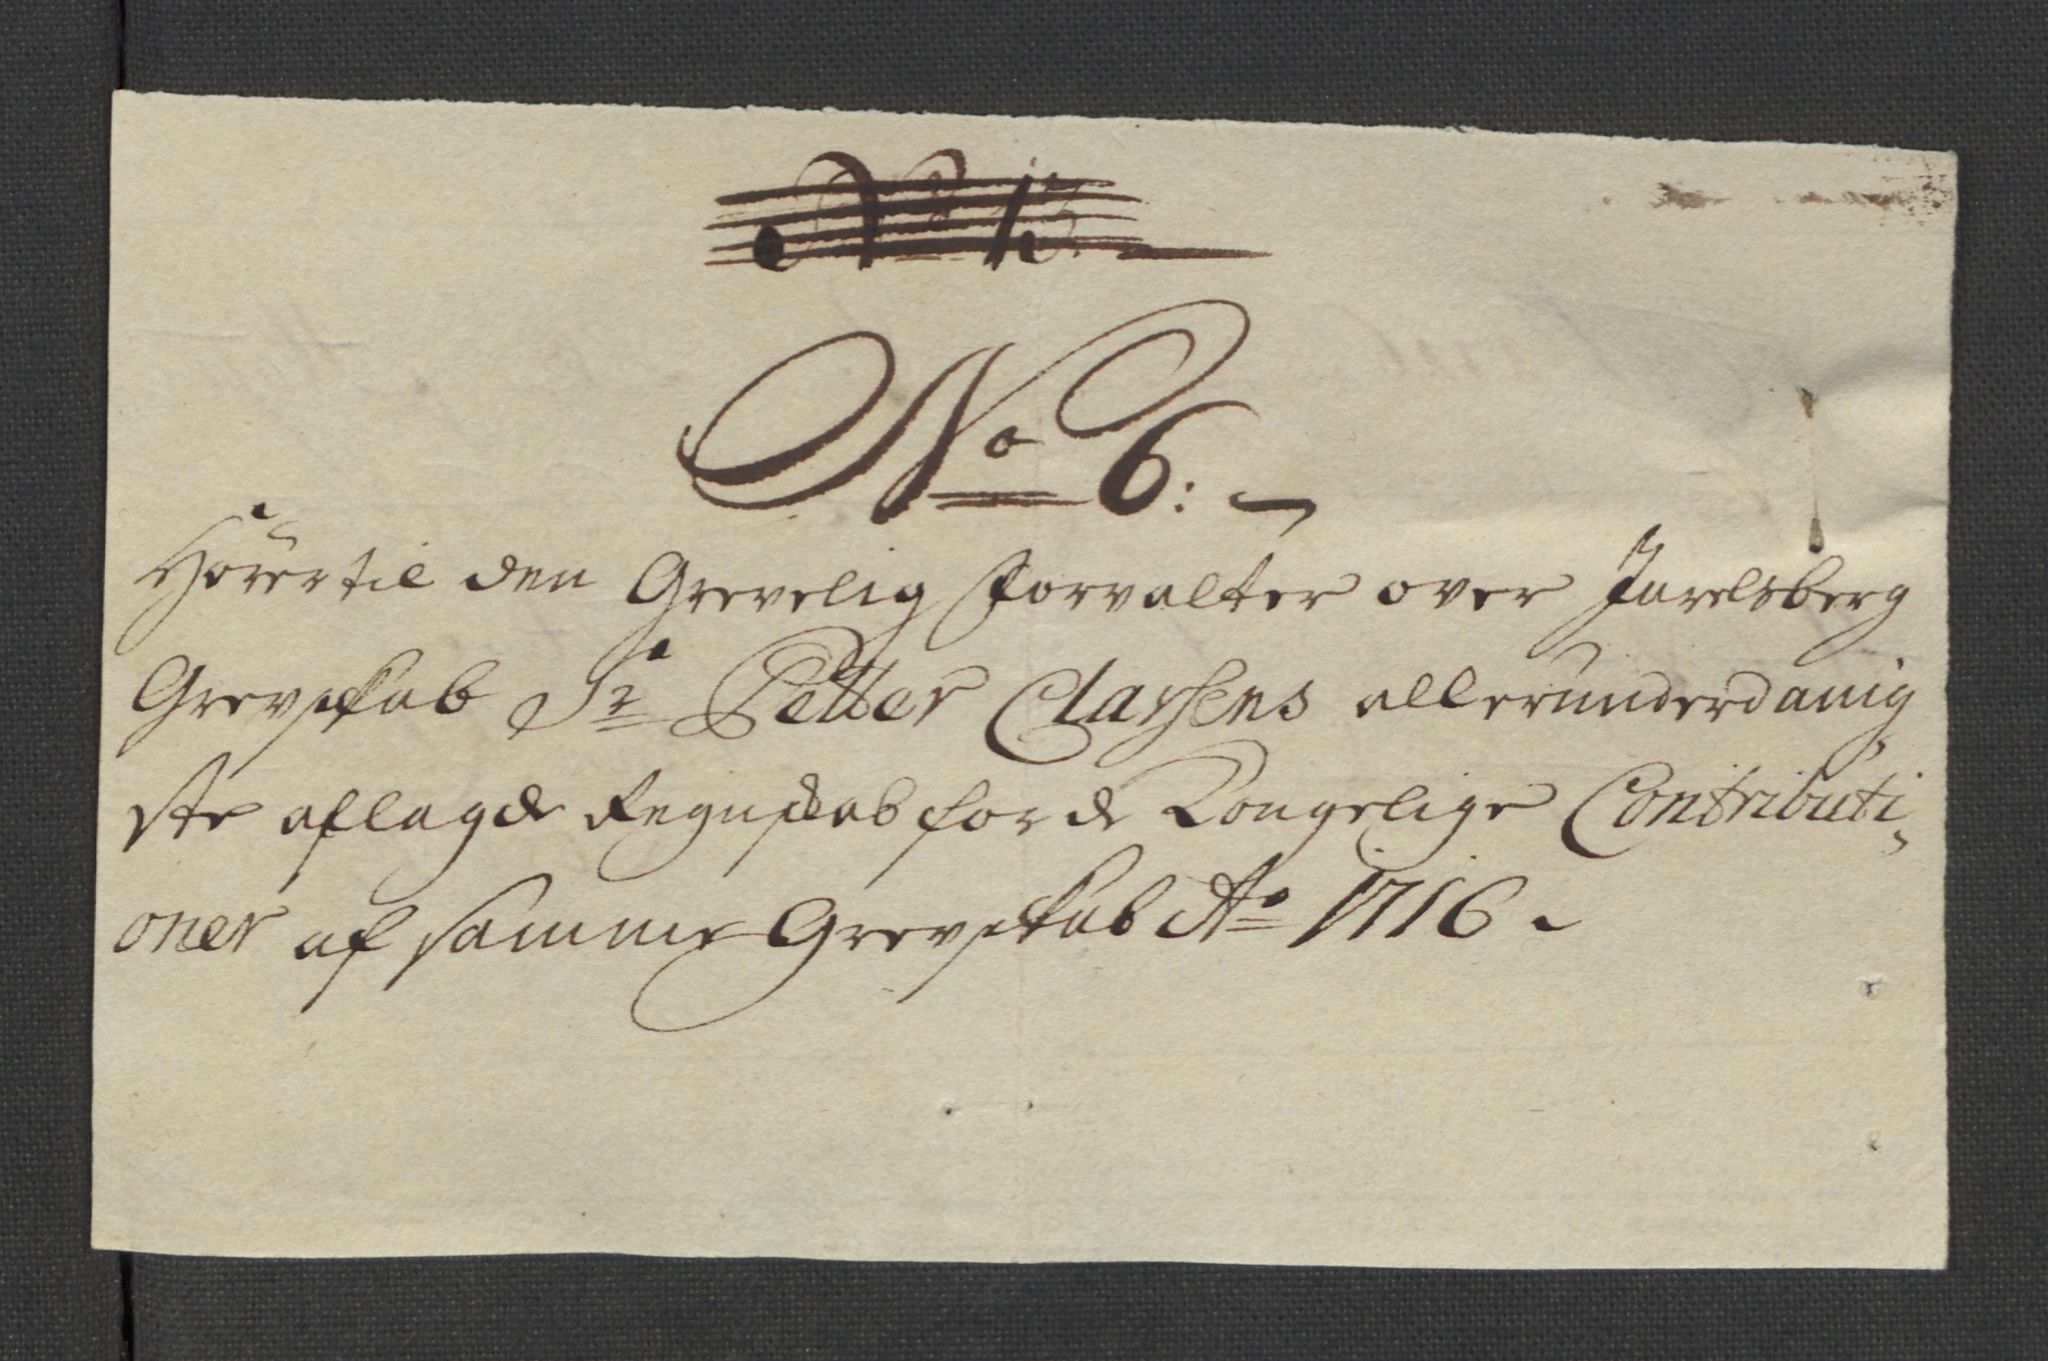 No 6:
Hörer til den Grevelig Forvalter over Jarelsberg
Grevskab Sr Petter Clausens allerunderdanig
ste aflagde Regnskab for de Kongelige Contributi,
oner af samme Grevskab Ao 1716